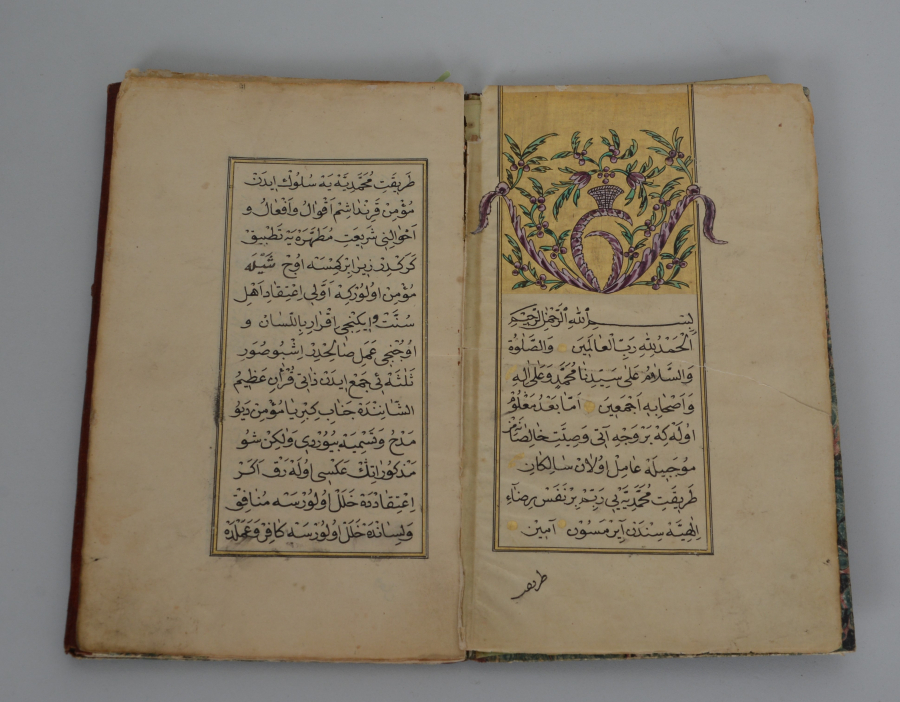 بسم الله الرحمن الرحيم
الحمد لله رب العالمين والصلوة
والسلام على سيدنا محمد وعلى اله
واصحابه اجمعين اما بعد معلوم
اوله كه بر وجه آتى وصيت خالصانه
موجبيله عامل اولان سالكان
طريقت محمديه يى ربم بر نفس رضاء
الهيه سندن آيرمسون آمين
طريقت
طريقت محمديه يه سلوك ايدن
مؤمن قرنداشم اقوال وافعال و
احوالنى شريعت مطهره يه تطبيق
كركدر زيرا بر كمسه اوح شيله
مؤمن اولور كه اولى اعتقاد اهل
سنت وايكنجى اقرار باللسان و
اوچنجى عمل صالحدر اشبو صور
ثلثه ئى جمع ايدن ذاتى قرآن عظيم
الشاننده جناب كبريا مؤمن ديو
مدح وتسميه بيوردى ولكن شو
مذكوراتك عكسى اوله رق اكر
اعتقادده خلل اولورسه منافق
ولسانده خلل اولورسه كافر وعملده